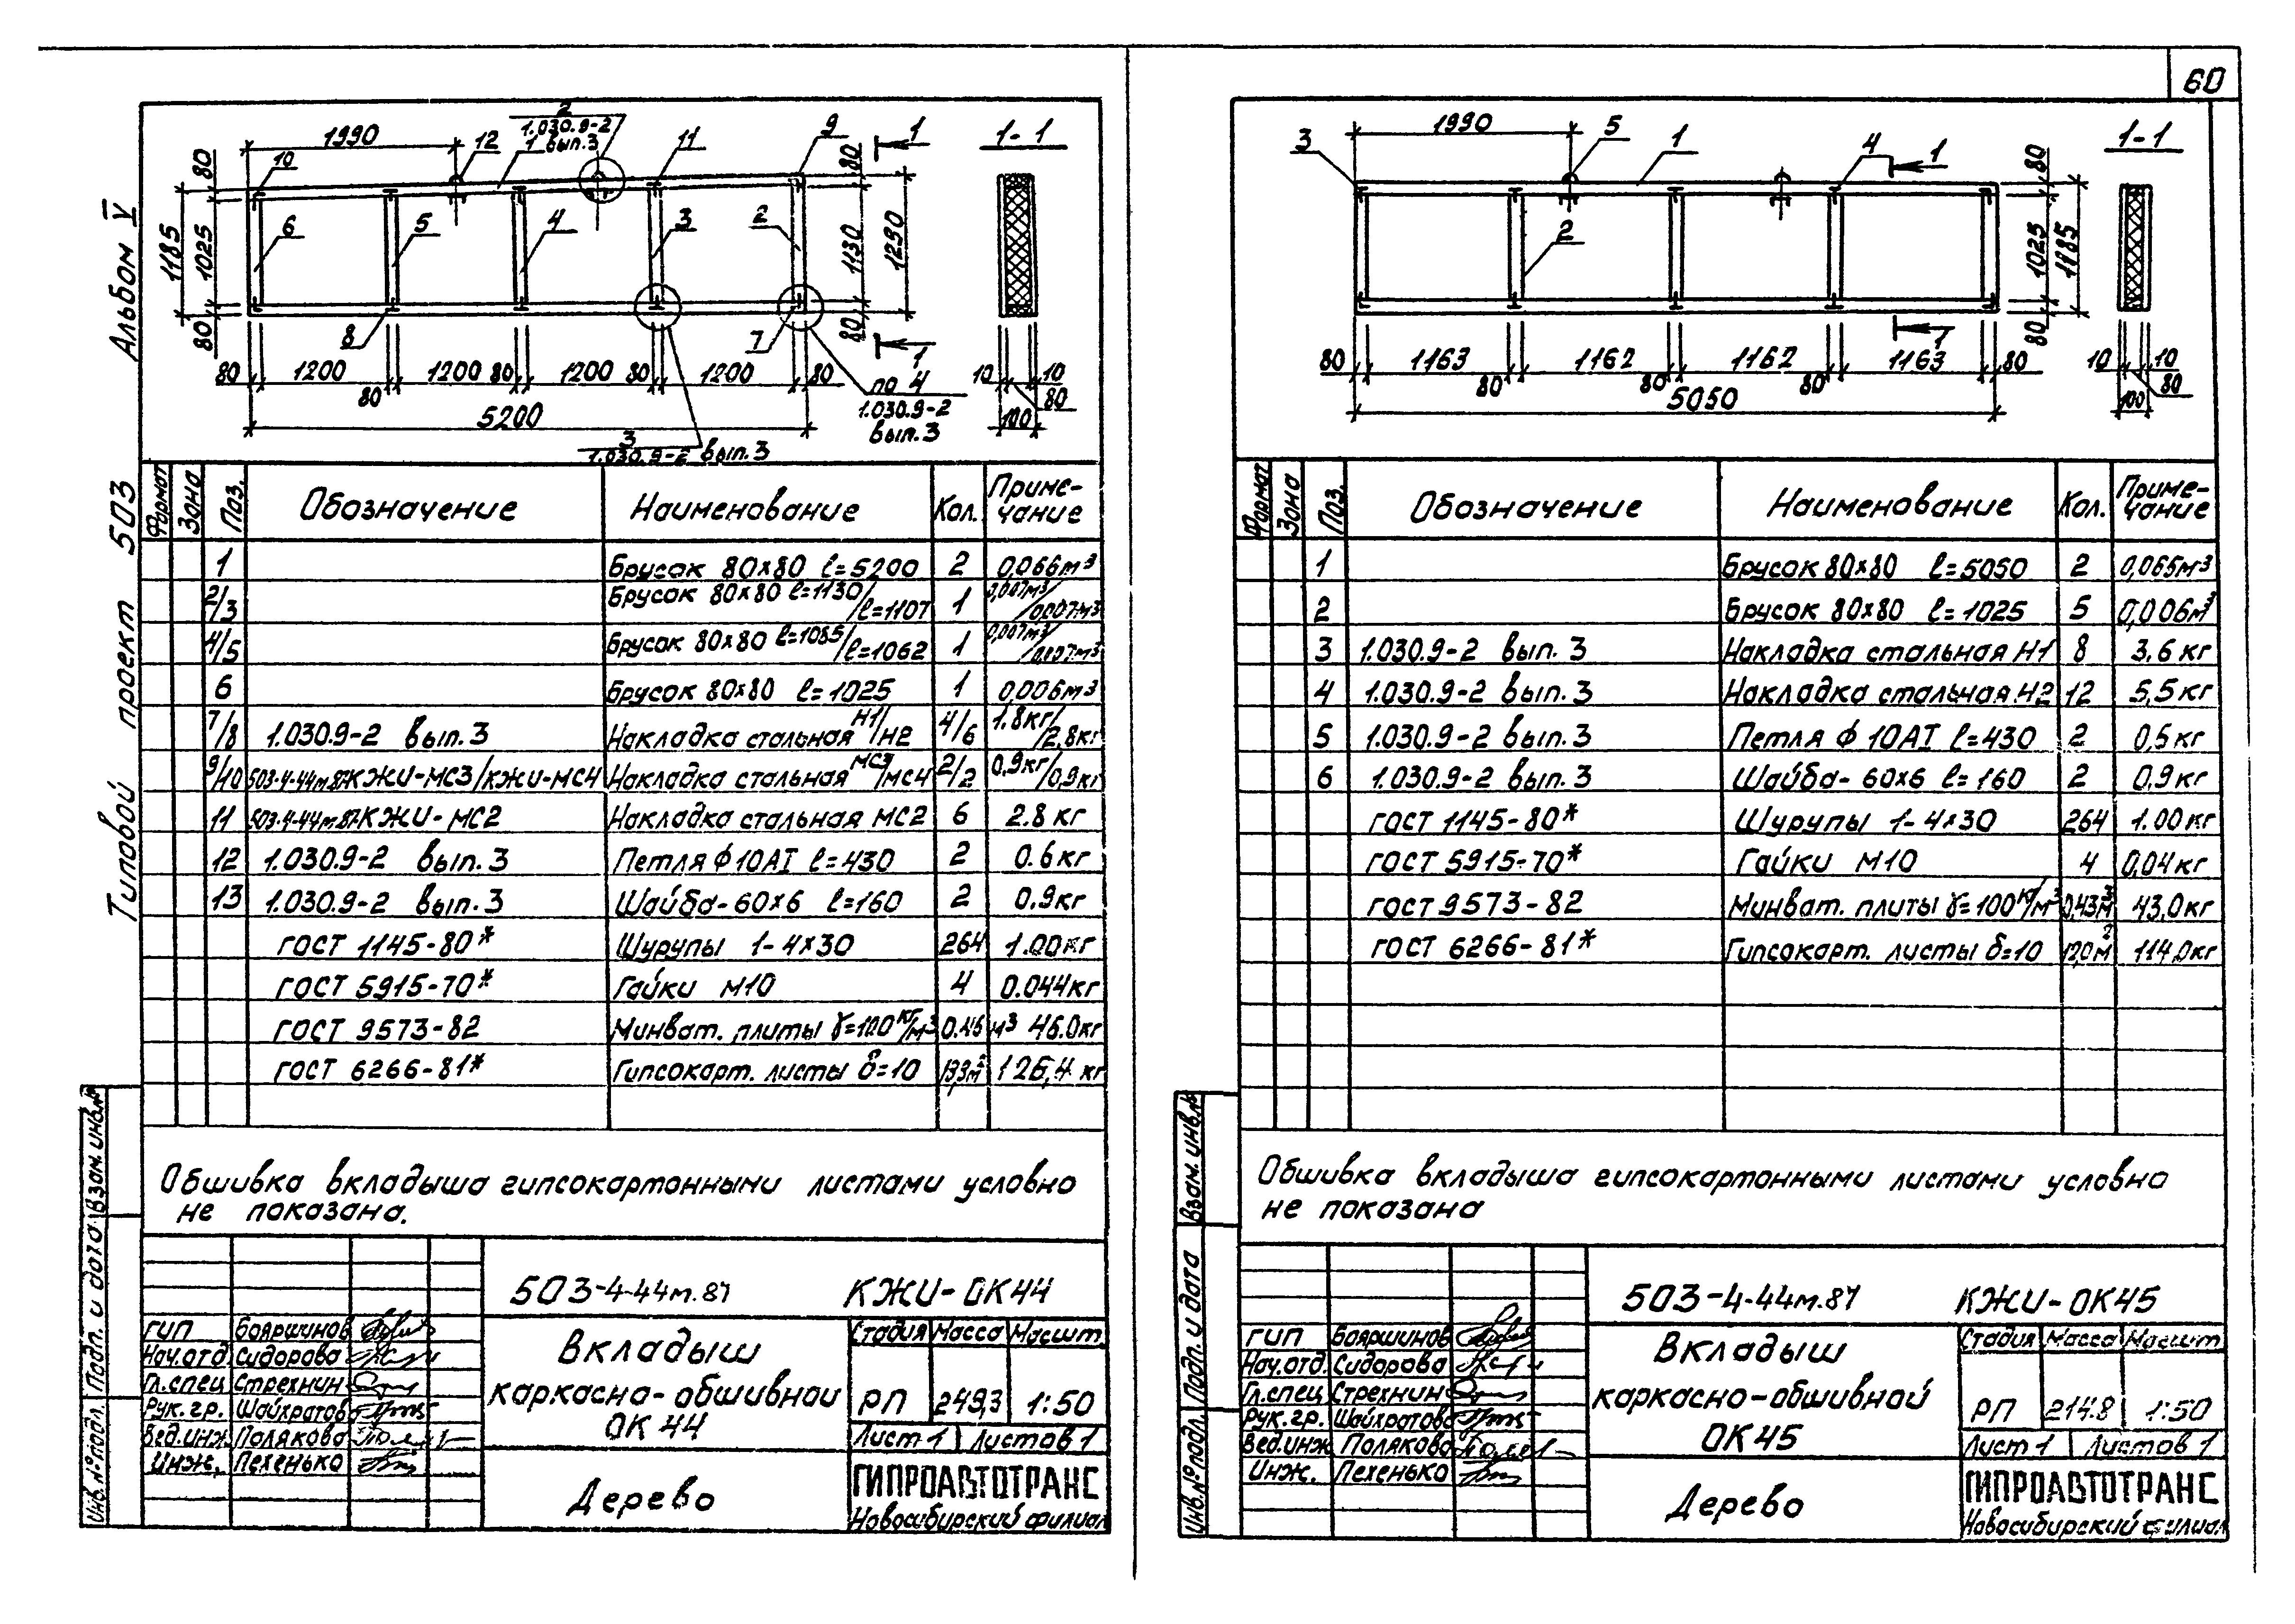 60
Альбом V
Типовой проект 503
1990
12
2
1.030.9-2
вып.3
1
11
9
1
1-1
80
10
80
1185
1025
6
5
4
3
2
1130
1290
80
8
7
80
1
80 1200 80 1200 80 1200 80 1200 80
5200
по 4
1.030.9-2
вып.3
3
1.030.9-2 вып.3
10 10
80
100
Формат Зона Поз. Обозначение Наименование Кол. Приме-
чание
1 Брусок 80×80 l=5200 2 0,066м³
2/3 Брусок 80×80 l=1130/l=1107 1 0,007м³/0,007м³
4/5 Брусок 80×80 l=1085/l=1062 1 0,007м³/0,007м³
6 Брусок 80×80 l=1025 1 0,006м³
7/8 1.030.9-2 вып.3 Накладка стальная Н1/Н2 4/6 1.8кг/2,8кг
9/10 503-4-44м.87 КЖИ-МС3/КЖИ-МС4 Накладка стальная МС3/МС4 2/2 0,9кг/0,9кг
11 503-4-44м.87 КЖИ-МС2 Накладка стальная МС2 6 2.8 кг
12 1.030.9-2 вып.3 Петля Ф10АI l=430 2 0.6кг
13 1.030.9-2 вып.3 Шайба-60×6 l=160 2 0,9кг
ГОСТ 1145-80* Шурупы 1-4×30 264 1.00кг
ГОСТ 5915-70* Гайки М10 4 0.044кг
ГОСТ 9573-82 Минват. плиты γ=100кг/м³ 0.46м³ 46.0кг
ГОСТ 6266-81* Гипсокарт. листы δ=10 13,3м² 126,4 кг
Обшивка вкладыша гипсокартонными листами условно
не показана.
503-4-44м.87 КЖИ-ОК44
ГИП Бояршинов
Нач.отд Сидорова
Гл.спец Стрехнин
Рук.гр. Шайхратова
Вед.инж Полякова
Инж. Пехенько
Вкладыш
каркасно-обшивной
ОК 44
Стадия Масса Масшт.
РП 249,3 1:50
Лист 1 Листов 1
Дерево
ГИПРОАВТОТРАНС
Новосибирский филиал
Инв.№ подл. Подп. и дата Взам. инв.№
1990
3
5
1
4
1
1-1
80
2
1025
1185
80
1
80 1163 80 1162 80 1162 80 1163 80
5050
10 10
80
100
Формат Зона Поз. Обозначение Наименование Кол. Приме-
чание
1 Брусок 80×80 l=5050 2 0,065м³
2 Брусок 80×80 l=1025 5 0,006м³
3 1.030.9-2 вып.3 Накладка стальная Н1 8 3,6 кг
4 1.030.9-2 вып.3 Накладка стальная Н2 12 5,5 кг
5 1.030.9-2 вып.3 Петля Ф 10АI l=430 2 0,5 кг
6 1.030.9-2 вып.3 Шайба-60×6 l=160 2 0,9кг
ГОСТ 1145-80* Шурупы 1-4×30 264 1.00кг
ГОСТ 5915-70* Гайки М10 4 0,04кг
ГОСТ 9573-82 Минват. плиты γ=100кг/м³ 0,43м³ 43,0кг
ГОСТ 6266-81* Гипсокарт. листы δ=10 12,0м² 114,0кг
Обшивка вкладыша гипсокартонными листами условно
не показана
503-4-44м.87 КЖИ-ОК45
ГИП Бояршинов
Нач.отд. Сидорова
Гл.спец Стрехнин
Рук.гр. Шайхратова
Вед.инж Полякова
Инж. Пехенько
Вкладыш
каркасно-обшивной
ОК45
Стадия Масса Масшт
РП 214.8 1:50
Лист 1 Листов 1
Дерево
ГИПРОАВТОТРАНС
Новосибирский филиал
Инв.№ подл. Подп. и дата Взам. инв.№